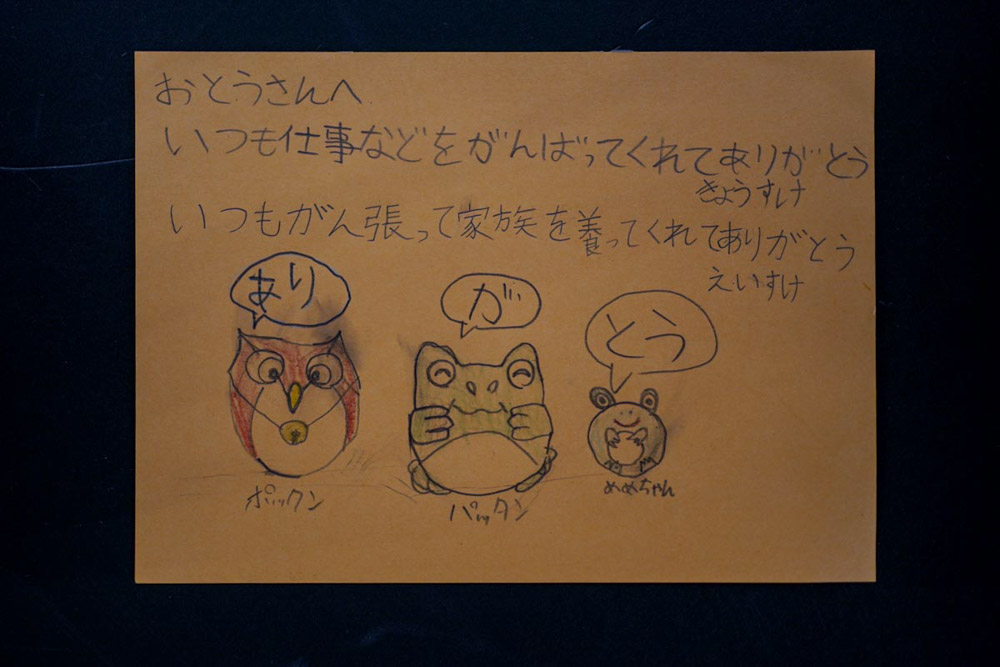 おとうさんへ
いつも仕事などをがんばってくれてありがとう
きょうすけ
いつもがん張って家族を養ってくれてありがとう
えいすけ
あり
が
とう
ポックン
パッタン
めめちゃん